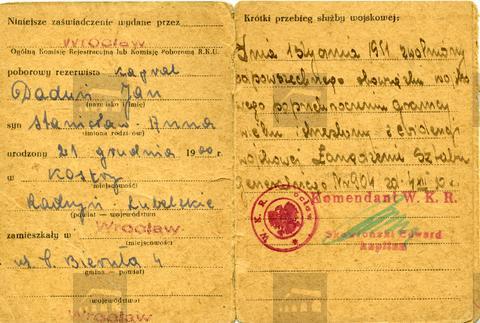 Niniejsze zaświadczenie wydane przez
Wrocław
Ogólną Komisję Rejestracyjną lub Komisję Poborową R.K.U.
poborowy rezerwista kapral
Daduń Jan
(nazwisko i imię)
syn Stanisław Anna
(imiona rodziców)
urodzony 21 grudnia 1900 r.
w
(miejscowość)
Radzyń Lubelskie
(powiat – województwo)
Wrocław
zamieszkały w
(miejscowość)
ul. B. Bieruta 4
(gmina – powiat)
(województwo)
Wrocław
Krótki przebieg służby wojskowej:
Dnia 1 stycznia 1951 zwolniony
powszechnego obowiązku wojsko
wego po przekroczeniu granicy
wieku i skreślony z ewidencji
wojskowej Szefa Sztabu
Generalnego Nr 904
Komendant W. K. R.
W. K. R. Wrocław
Skowroński Edward
kapitan